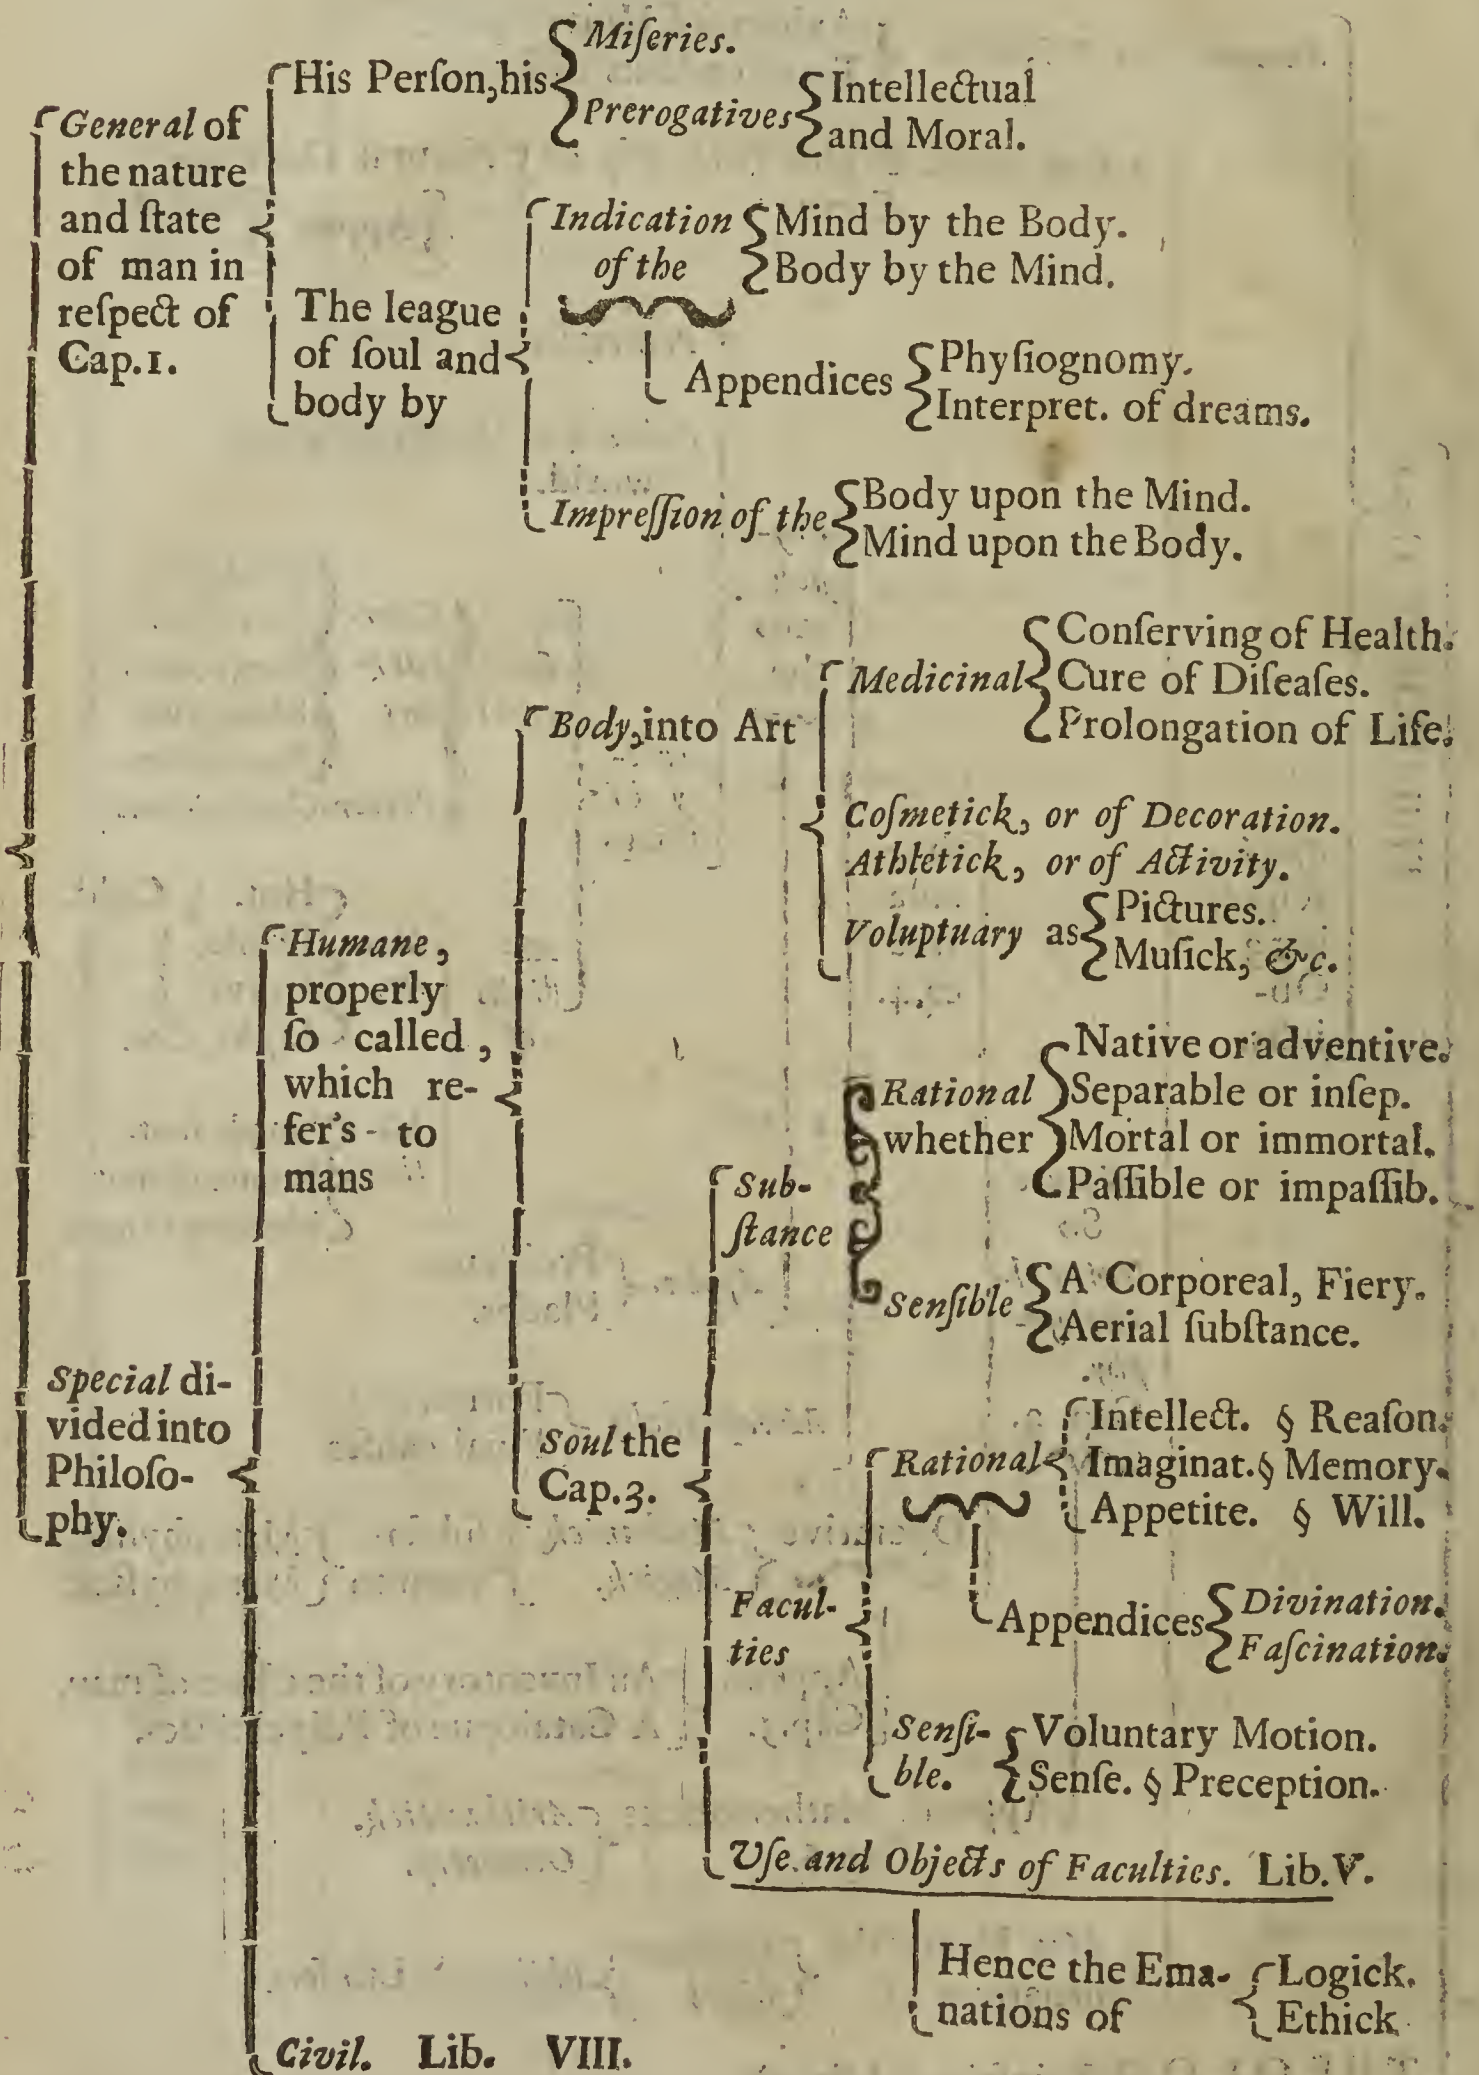 General of
the nature
and ſtate
of man in
reſpect of
Cap.1.
His Perſon,his
Miſeries.
Prerogatives
Intellectual
and Moral.
The league
of ſoul and
body by
Indication
of the
Mind by the Body.
Body by the Mind.
Appendices
Phyſiognomy.
Interpret. of dreams.
Impreſſion of the
Body upon the Mind.
Mind upon the Body.
Special di-
vided into
Philoſo-
phy.
Humane,
properly
ſo called,
which re-
fer's - to
mans
Body,into Art
Medicinal
Conſerving of Health.
Cure of Diſeaſes.
Prolongation of Life.
Coſmetick, or of Decoration.
Athletick, or of Activity.
Voluptuary as
Pictures.
Muſick, &c.
Soul the
Cap.3.
Sub-
ſtance
Rational
whether
Native or adventive.
Separable or inſep.
Mortal or immortal.
Paſſible or impaſſib.
Senſible
A Corporeal, Fiery.
Aerial ſubſtance.
Facul-
ties
Rational
Intellect. § Reaſon.
Imaginat. § Memory.
Appetite. § Will.
Appendices
Divination.
Faſcination.
Senſi-
ble.
Voluntary Motion.
Senſe. § Preception.
Uſe and Objects of Faculties. Lib.V.
Hence the Ema-
nations of
Logick.
Ethick
Civil. Lib. VIII.